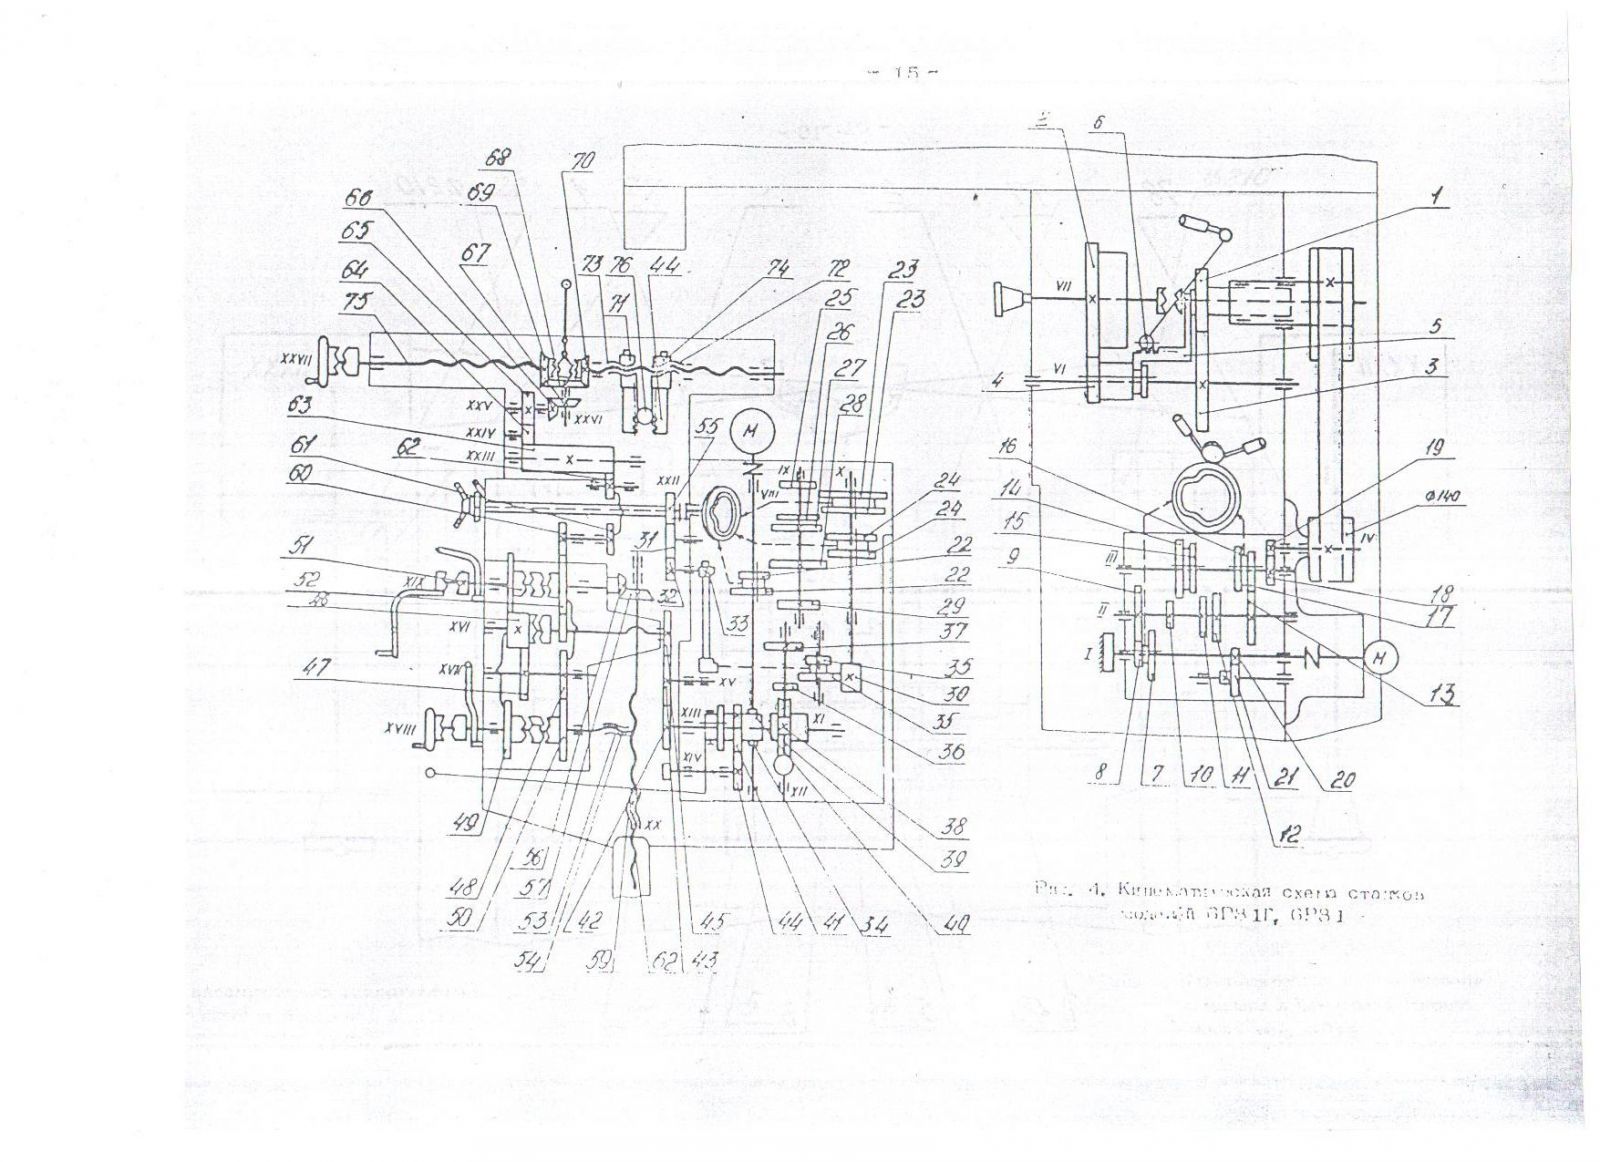 - 15 -
2 6
68 70
69 1
66
65 67 73 76 44 74 72 23
64 71 25 23
75 26 5
27 3
VII
XXVII
4 VI
28
XXV XXVI
63 XXIV 55 M
61 62 XXIII
16 19
60 XXII IX X
14 24
VIII 24
15 Ø140
51 31 IV
9 III
52 XIX 22
32 22 18
II
33 29 17
XVI 37
I M
47 XVII 35
XV 30 13
XVIII XIII XI 35
XIV 36
8 7 10 11 21 20
XII
49 XX 38 12
56 39
48 57
50 53 42 45 44 41 34 40
54 59 62 43
Рис. 4. Кинематическая схема станков
моделей 6Р81Г, 6Р81